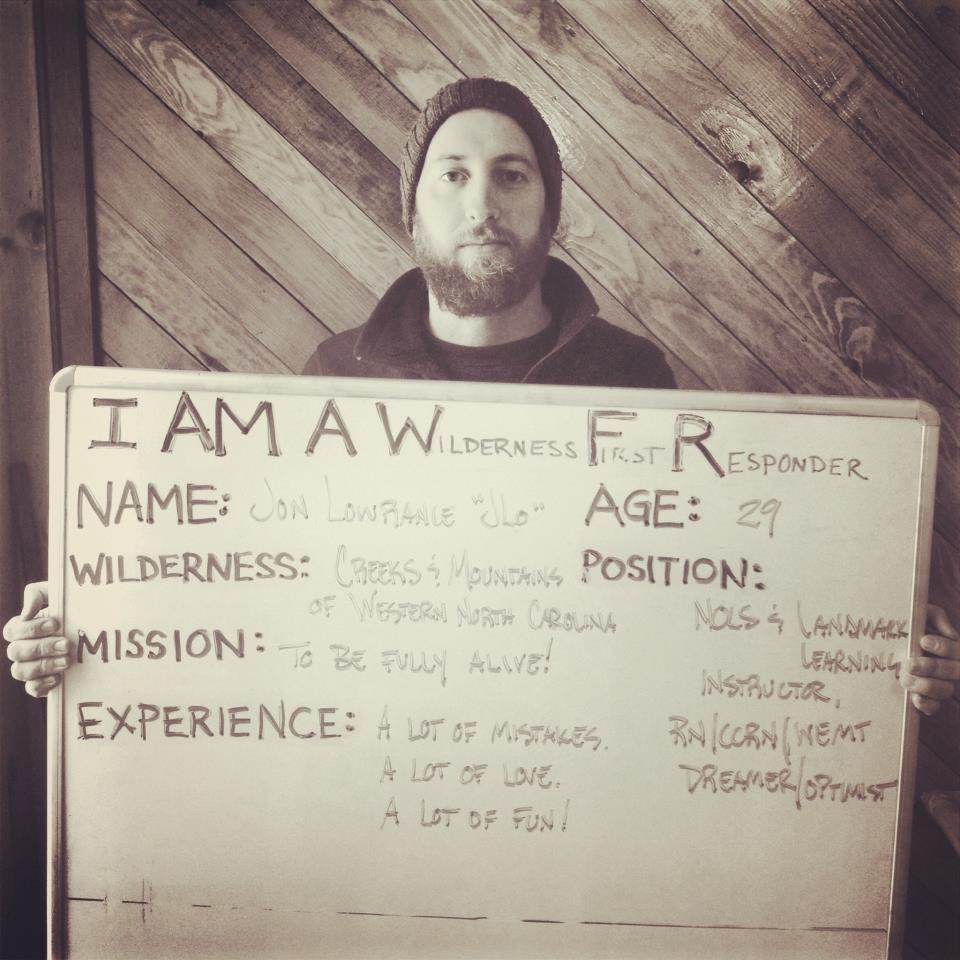 I AM A WILDERNESS FIRST RESPONDER
NAME: JON LOWRANCE "JLO" AGE: 29
WILDERNESS: CREEKS & MOUNTAINS
OF WESTERN NORTH CAROLINA
POSITION:
NOLS & LANDMARK
LEARNING
INSTRUCTOR,
RN/CCRN/WEMT
DREAMER/OPTIMIST
MISSION: TO BE FULLY ALIVE!
EXPERIENCE: A LOT OF MISTAKES.
A LOT OF LOVE.
A LOT OF FUN!